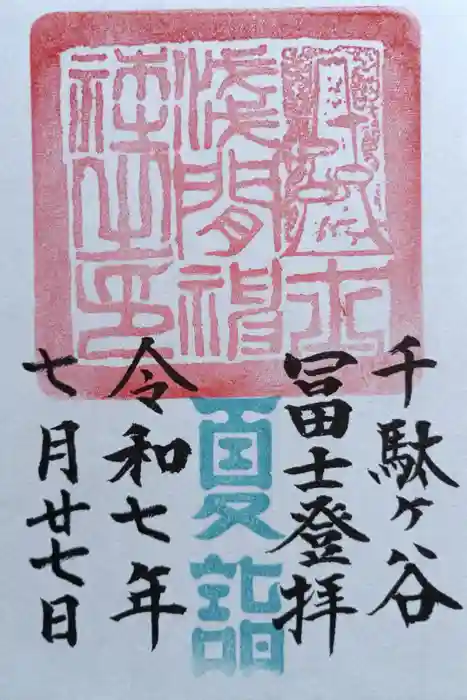 浅間神
社之印
千駄ヶ谷
冨士登拝
夏詣
令和七年
七月廿七日